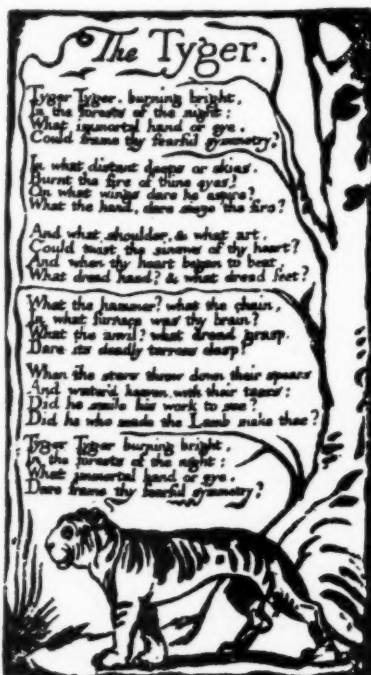 The Tyger.
Tyger Tyger. burning bright,
In the forests of the night:
What immortal hand or eye.
Could frame thy fearful symmetry?
In what distant deeps or skies.
Burnt the fire of thine eyes?
On what wings dare he aspire?
What the hand, dare sieze the fire?
And what shoulder, & what art,
Could twist the sinews of thy heart?
And when thy heart began to beat,
What dread hand? & what dread feet?
What the hammer? what the chain,
In what furnace was thy brain?
What the anvil? what dread grasp.
Dare its deadly terrors clasp?
When the stars threw down their spears
And water'd heaven with their tears:
Did he smile his work to see?
Did he who made the Lamb make thee?
Tyger Tyger burning bright,
In the forests of the night:
What immortal hand or eye.
Dare frame thy fearful symmetry?